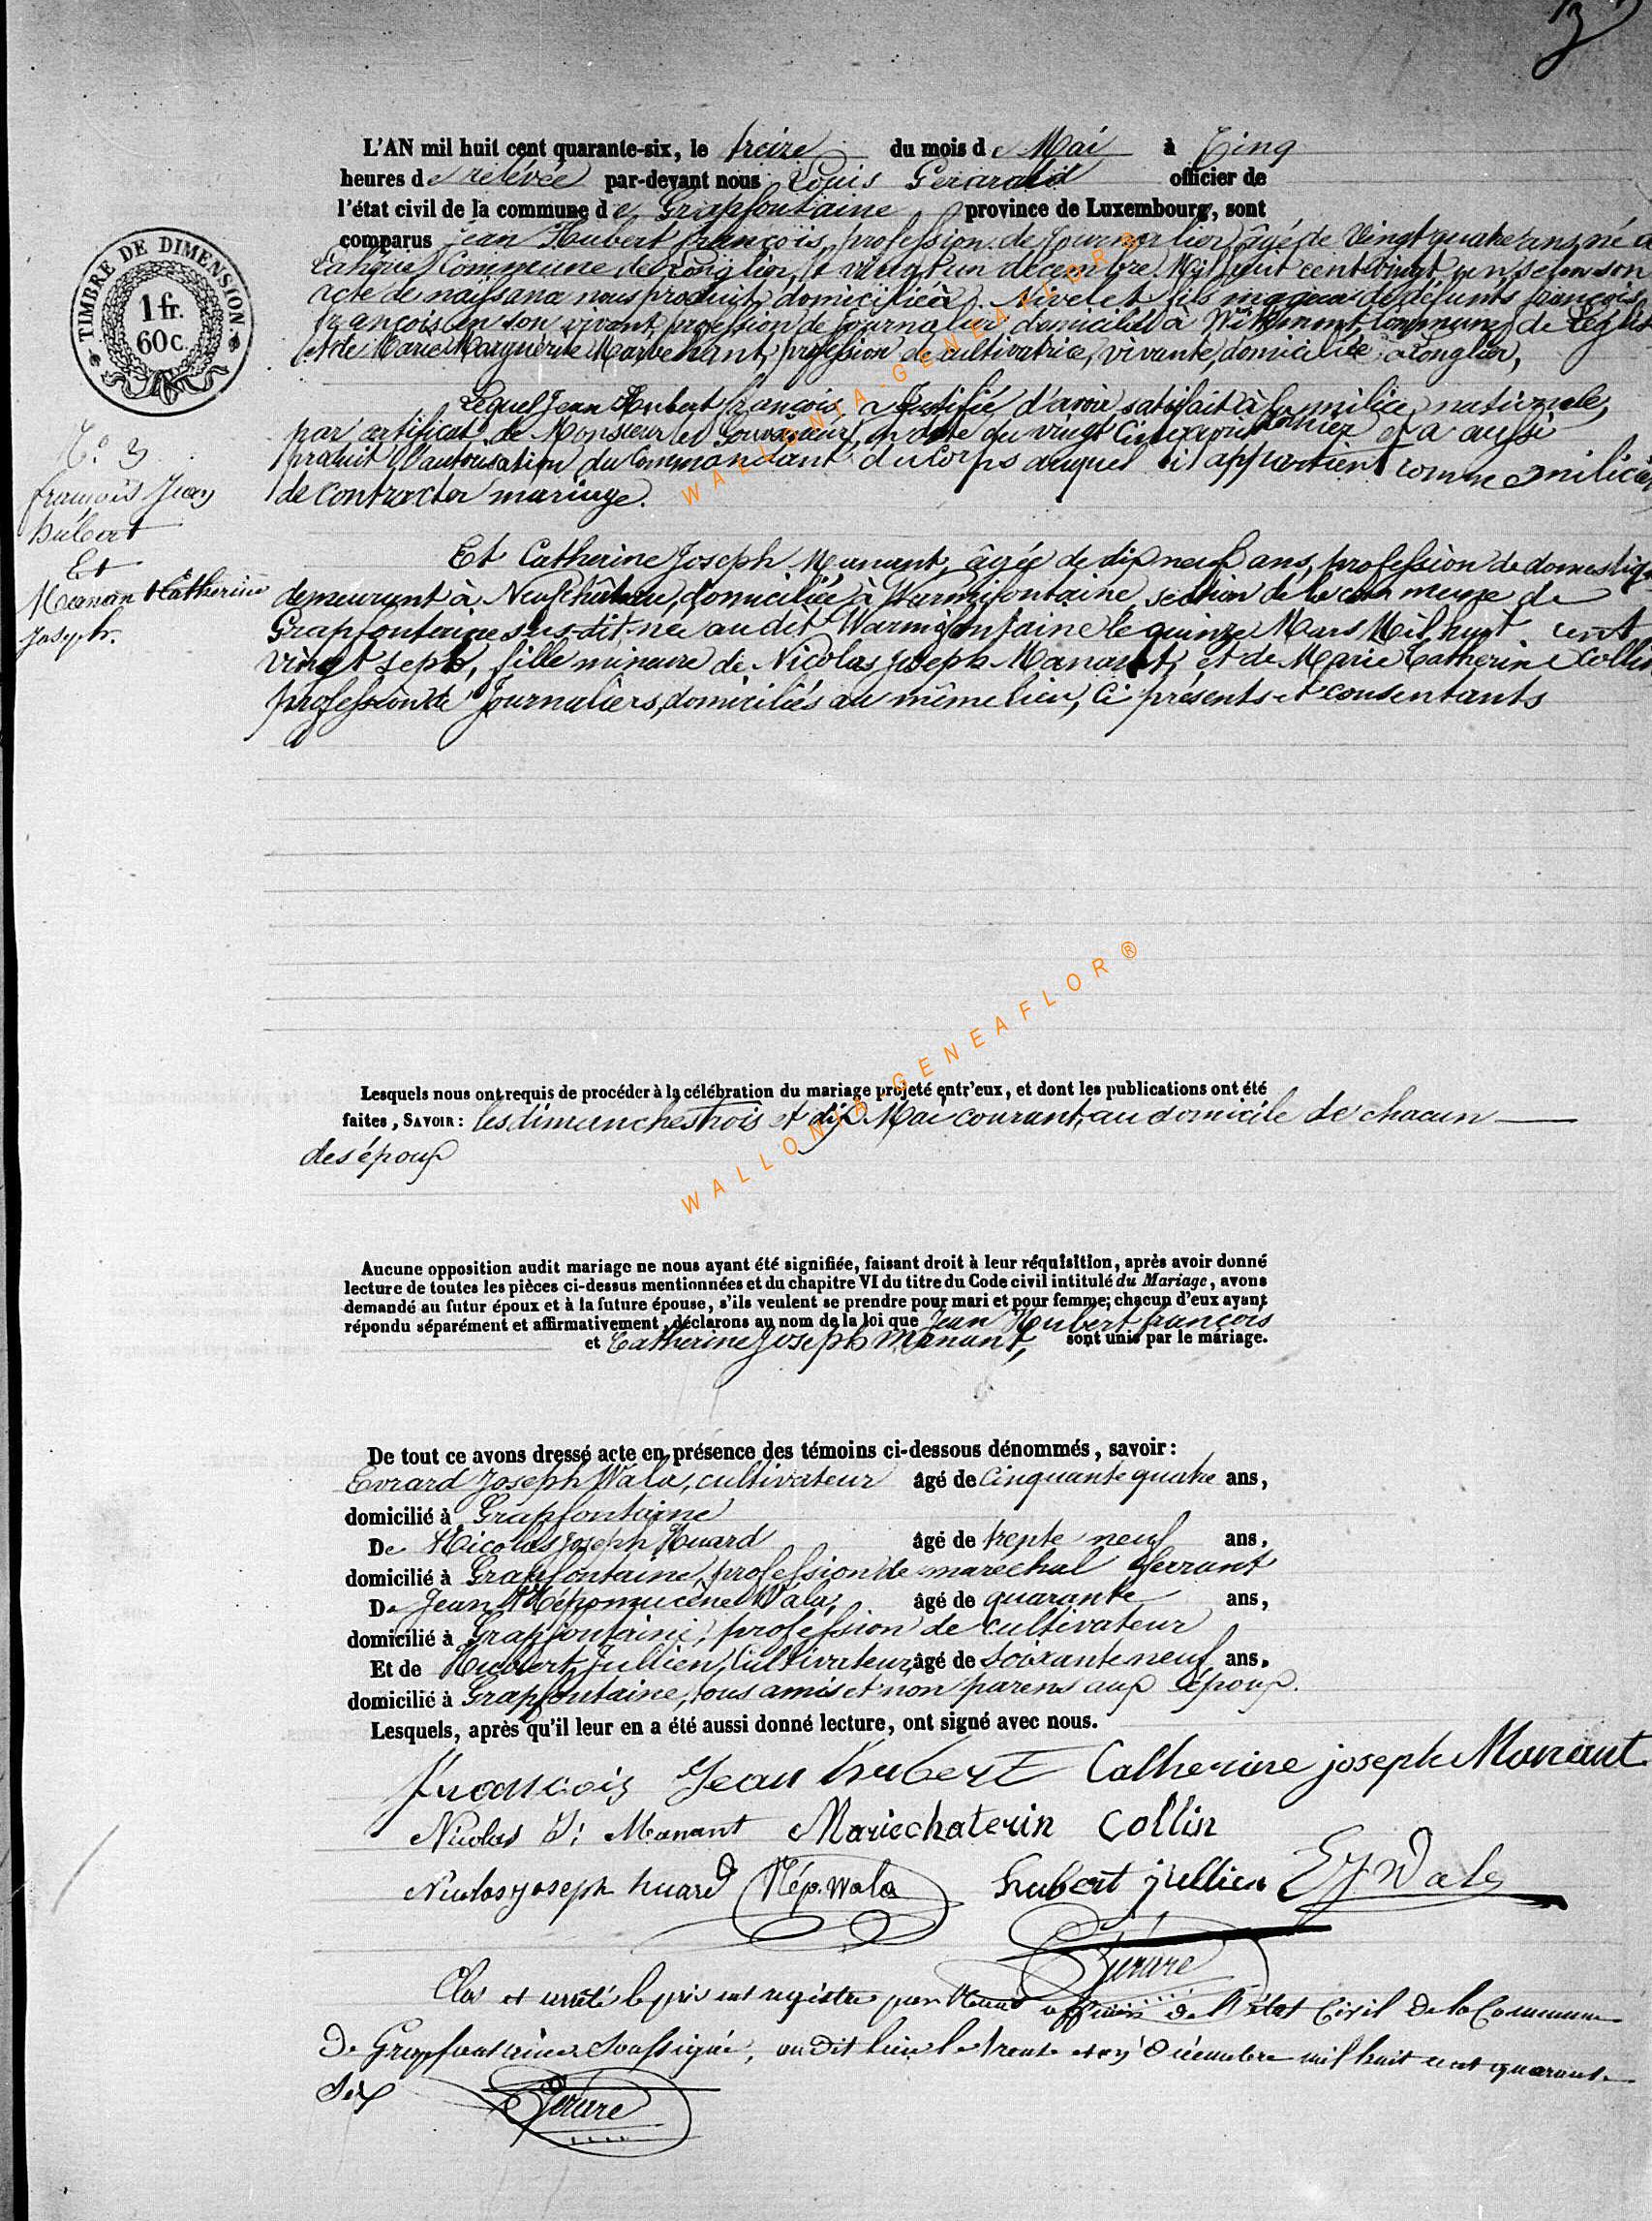 L'AN mil huit cent quarante-six, le treize du mois de Mai à Cinq
heures de relevée par-devant nous Louis Gerard officier de
l'état civil de la commune de Grapfontaine province de Luxembourg, sont
comparus Jean Hubert françois, profession de Journalier, âgé de Vingt quatre ans, né à
Commune de Longlier, le vingt un décembre Mil huit cent vingt un selon son
acte de naissance nous produit, domicilié à Nivelet fils majeur de défunts françois
françois en son vivant, profession de Journalier domicilié à Wittimont, Commune de Léglise
et de Marie Marguerite Marbehant, profession de cultivatrice, vivante, domiciliée à Longlier,
Lequel Jean Hubert françois a Justifié d'avoir satisfait à la milice nationale,
par certificat de Monsieur le Gouverneur, en date du vingt Cinq avril dernier et a aussi
produit l'autorisation du Commandant du Corps auquel il appartient comme milicien
de contracter mariage.
TIMBRE DE DIMENSION
1 fr.
60 c.
N.° 3
françois Jean
hubert
Et
Manant Catherine
Joseph.
Et Catherine Joseph Manant, âgée de dix neuf ans, profession de domestique
demeurant à Neufchâteau, domiciliée à Warmifontaine, section de la commune de
Grapfontaine sus-dit née au dit Warmifontaine le quinze Mars Mil huit cent
vingt sept, fille mineure de Nicolas Joseph Manant, et de Marie Catherine Collin
profession de Journaliers, domiciliés au même lieu, ci présents et consentants
Lesquels nous ont requis de procéder à la célébration du mariage projeté entr'eux, et dont les publications ont été
faites, SAVOIR : les dimanches trois et dix Mai courant, au domicile de chacun
des époux
Aucune opposition audit mariage ne nous ayant été signifiée, faisant droit à leur réquisition, après avoir donné
lecture de toutes les pièces ci-dessus mentionnées et du chapitre VI du titre du Code civil intitulé du Mariage, avons
demandé au futur époux et à la future épouse, s'ils veulent se prendre pour mari et pour femme; chacun d'eux ayant
répondu séparément et affirmativement, déclarons au nom de la loi que Jean Hubert françois
et Catherine Joseph Manant, sont unis par le mariage.
De tout ce avons dressé acte en présence des témoins ci-dessous dénommés, savoir :
Evrard Joseph Wala, cultivateur âgé de Cinquante quatre ans,
domicilié à Grapfontaine
De Nicolas Joseph Huard âgé de trente neuf ans,
domicilié à Grapfontaine, profession de maréchal ferrant
De Jean Népomucène Wala, âgé de quarante ans,
domicilié à Grapfontaine, profession de cultivateur
Et de Hubert Jullien, Cultivateur, âgé de soixante neuf ans,
domicilié à Grapfontaine, tous amis et non parens aux époux.
Lesquels, après qu'il leur en a été aussi donné lecture, ont signé avec nous.
françois Jean hubert Catherine joseph Manant
Nicolas J: Manant Mariechaterin Collin
Nicolas joseph huard Nép. Wala hubert jullien E J Wala
Gérard
Clos et arrêté le présent registre par Nous officier de l'état Civil de la Commune
de Grapfontaine soussigné, au dit lieu le trente et un Décembre mil huit cent quarante
six Gérard
WALLONIA-GENEAFLOR®
WALLONIA-GENEAFLOR®